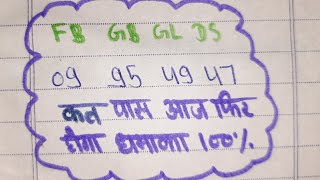 FB GB GL DS
09 95 49 47
कल पास आज फिर
होगा धमाका 100%.